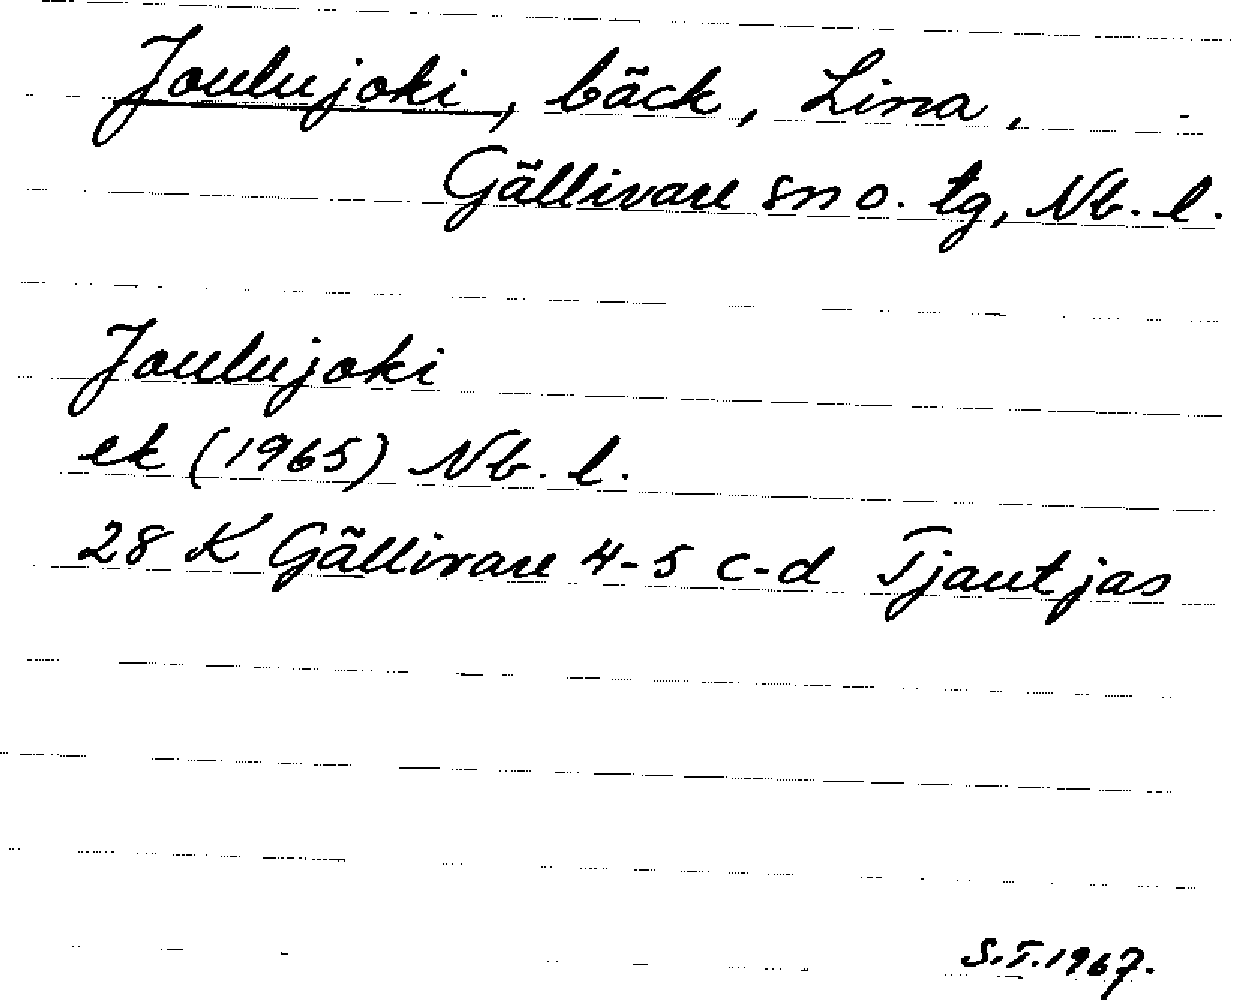 Joulujoki, bäck, Lina,
Gällivare sn o. tg, Nb. l.
Joulujoki
ek (1965) Nb. l.
28 K Gällivare 4-5 c-d Tjautjas
S.T. 1967.